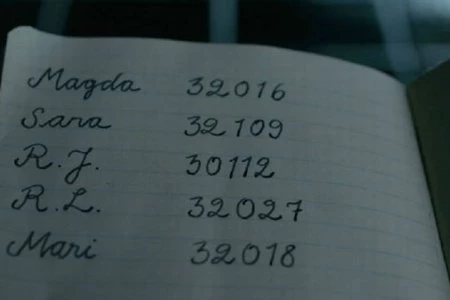 Magda 32016
Sara 32109
R.J. 30112
R.L. 32027
Mari 32018